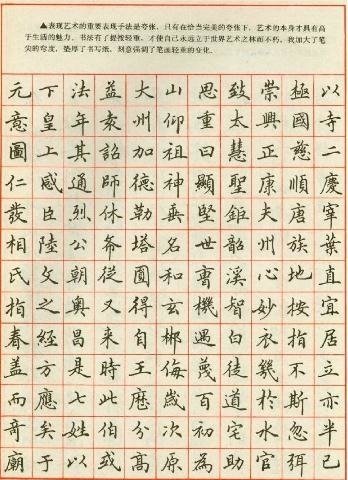 ▲表现艺术的重要表现手法是夸张，只有在恰当完美的夸张下，艺术的本身才具有高
于生活的魅力。书法有了提按轻重，才使自己永远立于世界艺术之林而不朽。我加大了笔
尖的弯度，垫厚了书写纸，刻意强调了笔画轻重的变化。
以寺二慶寧葉直宜居立亦半已
極國慈順唐族地按指不斯忽弭
崇興正康夫州心妙衣幾於水官
致太慧聖鉅韶溪智白徒道宅助
思重曰顯堅世曹機遇蔑百初為
山仰祖神垂名和玄郴侮歲次原
大州加德勒塔圓得自王歷分高
益亥詔師休奔從又来時此伯或
法年其通烈公朝奥昌是七姓以
下皇上感臣陸文之經方應矣于
元意圖仁發相氏指春盖而奇廟